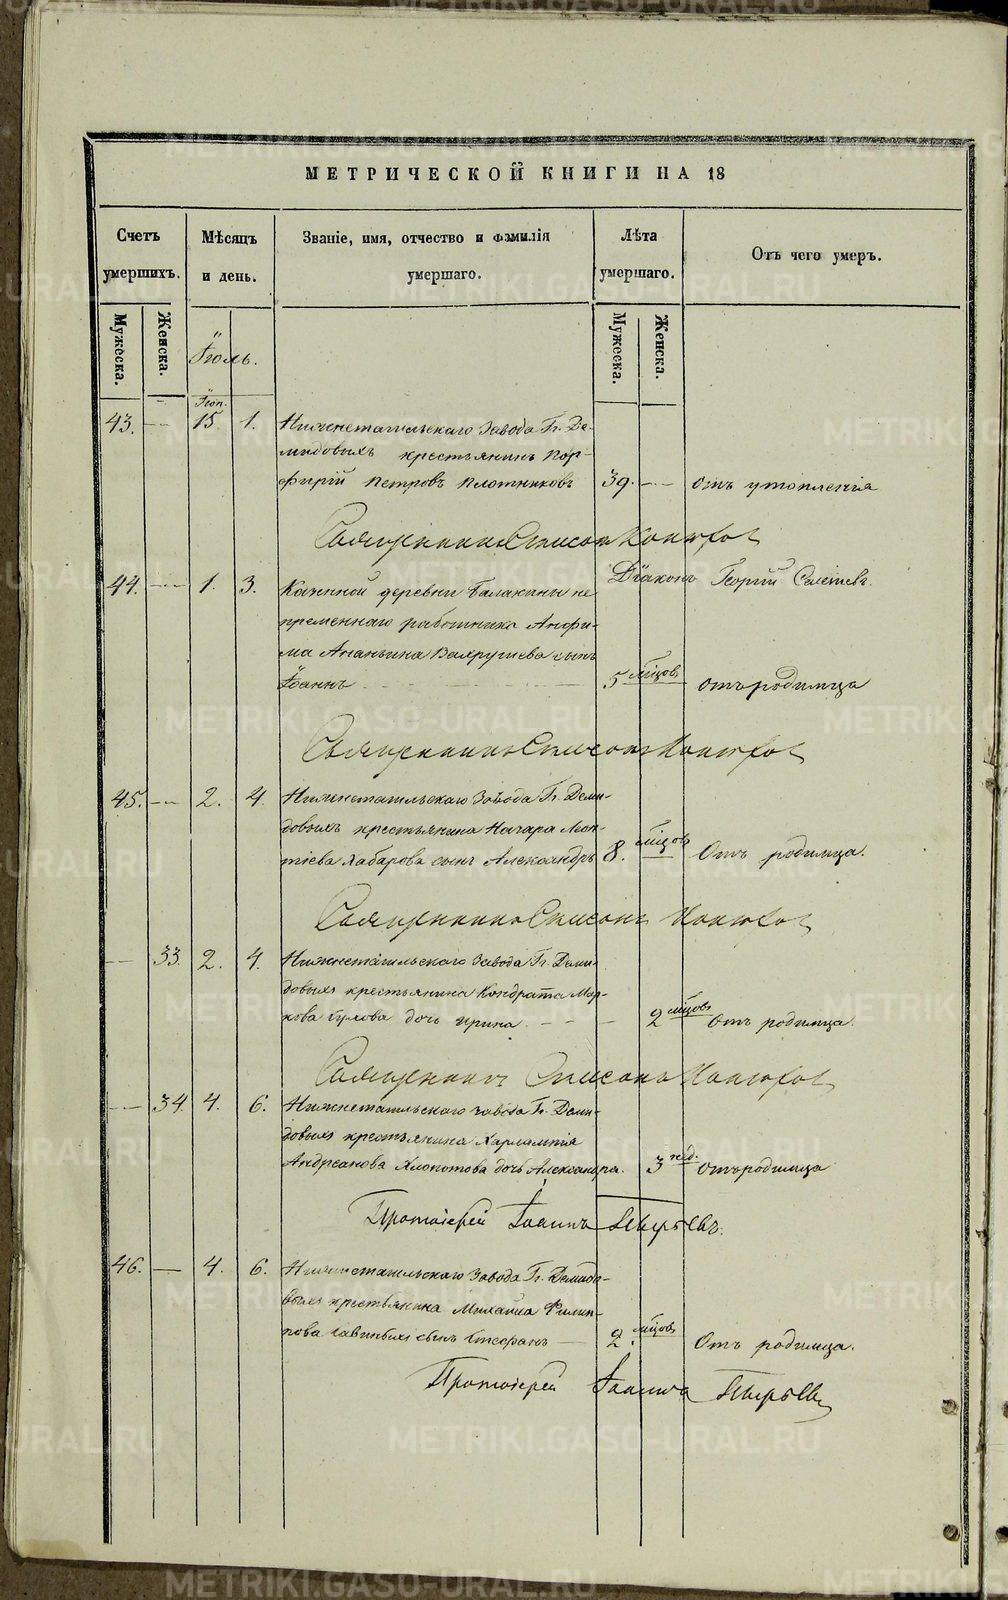 МЕТРИЧЕСКОЙ КНИГИ НА 18
Счетъ умершихъ.
Мѣсяцъ и день.
Званіе, имя, отчество и фамилія умершаго.
Лѣта умершаго.
Отъ чего умеръ.
Мужеска.
Женска.
Мужеска.
Женска.
Іюль.
Іюн.
43. — 15 1. Нижнетагильскаго Завода Гг. Де-
мидовыхъ крестьянинъ Пор-
фирій Петровъ Плотниковъ 39. — отъ утопленія
Священникъ
Діаконъ Георгій
44. — 1. 3. Казенной деревни Балакины не
премѣннаго работника Анфи-
ма Ананьина Вахрушева сынъ
Іоаннъ 5 мѣсцовъ отъ родимца
Священникъ
45. — 2. 4. Нижнетагильскаго Завода Гг. Деми-
довыхъ крестьянина Назара Мок-
тіева Хабарова сынъ Александръ 8. мѣсцовъ Отъ родимца.
Священникъ
— 33. 2. 4. Нижнетагильскаго Завода Гг. Деми-
довыхъ крестьянина Кондрата Мар-
кова дочь Ирина 2 мѣсцовъ Отъ родимца.
Священникъ
— 34. 4. 6. Нижнетагильскаго завода Гг. Деми-
довыхъ крестьянина Харлампія
Андреанова Хлопотова дочь Александра. 3 нед. Отъ родимца
Протоіерей Іоаннъ Пырьевъ.
46. — 4. 6. Нижнетагильскаго Завода Гг. Демидо-
выхъ крестьянина Михаила Филип-
пова сынъ Стефанъ — 2. мѣсцовъ Отъ родимца.
Протоіерей Іоаннъ Пырьевъ
METRIKI.GASO-URAL.RU